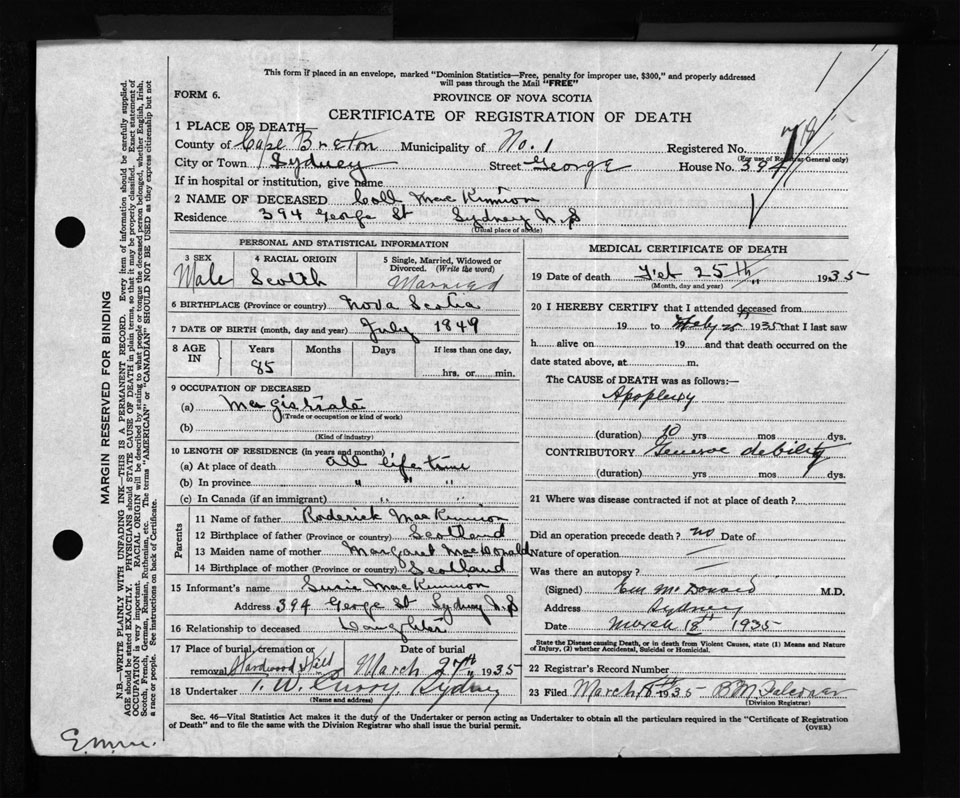 This form if placed in an envelope, marked "Dominion Statistics—Free, penalty for improper use, $300," and properly addressed
will pass through the Mail "FREE"
FORM 6.
PROVINCE OF NOVA SCOTIA
CERTIFICATE OF REGISTRATION OF DEATH
1 PLACE OF DEATH—
County of Cape Breton Municipality of No. 1 Registered No.
(For use of Registrar General only)
City or Town Sydney Street George House No. 394
If in hospital or institution, give name
2 NAME OF DECEASED Coll MacKinnon
Residence 394 George St Sydney N.S
(Usual place of abode)
PERSONAL AND STATISTICAL INFORMATION
3 SEX Male
4 RACIAL ORIGIN Scotch
5 Single, Married, Widowed or Divorced. (Write the word) Married
6 BIRTHPLACE (Province or country) Nova Scotia
7 DATE OF BIRTH (month, day and year) July 1849
8 AGE IN Years 85 Months Days If less than one day, hrs. or min.
9 OCCUPATION OF DECEASED
(a) Magistrate
(Trade or occupation or kind of work)
(b)
(Kind of industry)
10 LENGTH OF RESIDENCE (in years and months)
(a) At place of death all life time
(b) In province " " "
(c) In Canada (if an immigrant) " "
Parents
11 Name of father Roderick MacKinnon
12 Birthplace of father (Province or country) Scotland
13 Maiden name of mother Margaret MacDonald
14 Birthplace of mother (Province or country) Scotland
15 Informant's name Susie MacKinnon
Address 394 George St Sydney N.S
16 Relationship to deceased Daughter
17 Place of burial, cremation or removal Hardwood Hill Date of burial March 27th 1935
18 Undertaker T. W. Curry, Sydney
(Name and address)
MEDICAL CERTIFICATE OF DEATH
19 Date of death Feb 25th " 1935
(Month, day and year)
20 I HEREBY CERTIFY that I attended deceased from
19 to Feby 25 1935 that I last saw
h alive on 19 and that death occurred on the
date stated above, at m.
The CAUSE of DEATH was as follows:—
Apoplexy
(duration) 10 yrs mos dys.
CONTRIBUTORY General debility
(duration) yrs mos dys.
21 Where was disease contracted if not at place of death?
Did an operation precede death? no Date of
Nature of operation —
Was there an autopsy? —
(Signed) McDonald M.D.
Address Sydney
Date March 18th 1935
State the Disease causing Death, or in death from Violent Causes, state (1) Means and Nature of Injury, (2) whether Accidental, Suicidal or Homicidal.
22 Registrar's Record Number
23 Filed March 1935 B.M. Falconer
(Division Registrar)
Sec. 46—Vital Statistics Act makes it the duty of the Undertaker or person acting as Undertaker to obtain all the particulars required in the "Certificate of Registration
of Death" and to file the same with the Division Registrar who shall issue the burial permit.
(OVER)
MARGIN RESERVED FOR BINDING
N.B.—WRITE PLAINLY WITH UNFADING INK—THIS IS A PERMANENT RECORD. Every item of information should be carefully supplied.
AGE should be stated EXACTLY. PHYSICIANS should STATE CAUSE OF DEATH in plain terms, so that it may be properly classified. Exact statement of
OCCUPATION is very important. RACIAL ORIGIN will be described by stating to what people or tongue the deceased person belonged, whether English, Irish,
Scotch, French, German, Russian, Ruthenian, etc. The terms "AMERICAN" or "CANADIAN" SHOULD NOT BE USED as they express citizenship but not
a race or people. See instructions on back of Certificate.